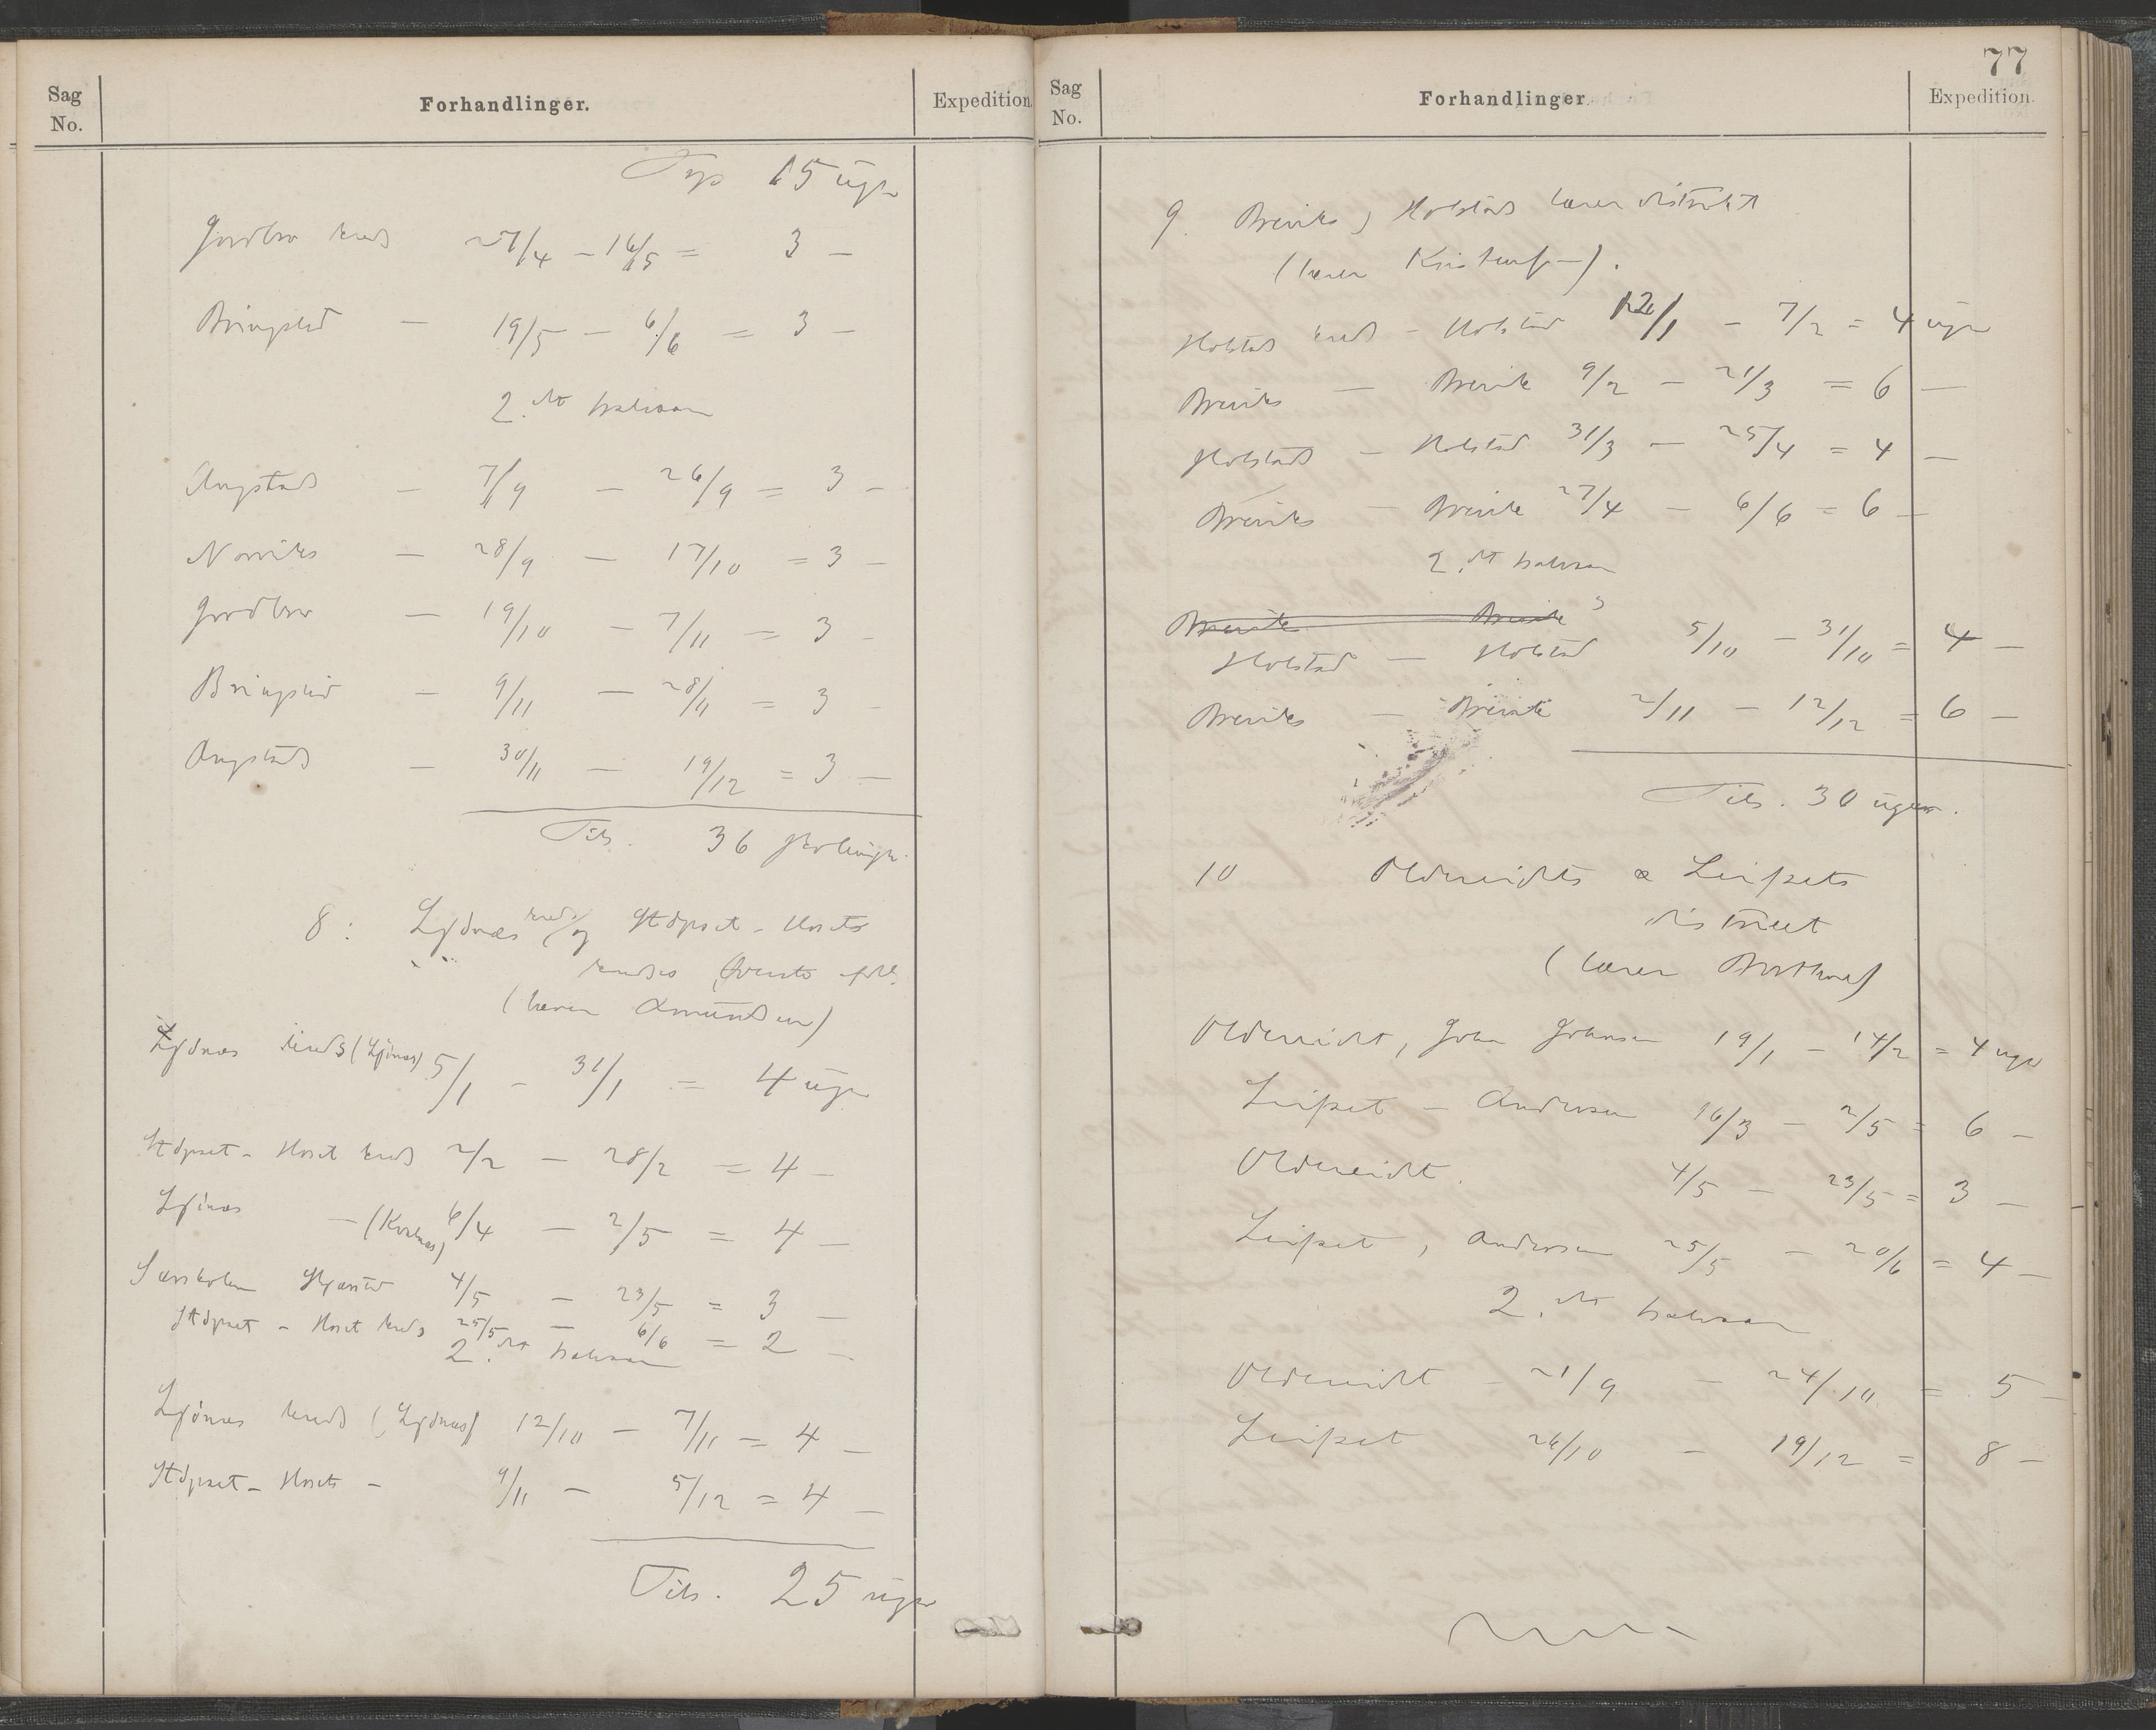 Sag
No.
Forhandlinger.
Expedition.
15 uger
Jordbro kreds 27/4 – 16/5 = 3 –
Bringslid – 19/5 – 6/6 = 3 –
2.det halvaar
Angstad – 7/9 – 26/9 = 3 –
Norviks – 28/9 – 17/10 = 3 –
Jordbro – 19/10 – 7/11 = 3 –
Bringslid – 9/11 – 28/11 = 3 –
Angstad – 30/11 – 19/12 = 3 –
Tils. 36 skoleuger
8: Ljønæs kreds og Støpset - Hosets
kredse
(lærer Amundsen)
Ljønæs kreds (Ljønæs) 5/1 – 31/1 = 4 uger
Støpset - Hoset kreds 2/2 – 28/2 = 4 –
Ljønæs – (Kvalnæs) 6/4 – 2/5 = 4 –
4/5 – 23/5 = 3 –
Støpset - Hoset kreds 25/5 – 6/6 = 2 –
2.det halvaar
Ljønæs kreds (Ljønæs) 12/10 – 7/11 = 4 –
Støpset - Hosets – 9/11 – 5/12 = 4 –
Tils. 25 uger
77
Sag
No.
Forhandlinger.
Expedition.
9. Breviks, Holstads lærerdistrikt
(lærer Kristensen).
Holstad kreds – Holstad 12/1 – 7/2 = 4 uger
Breviks – Brevik 9/2 – 21/3 = 6 –
Holstads – Holstad 31/3 – 25/4 = 4 –
Breviks – Brevik 27/4 – 6/6 = 6 –
2.det halvaar
Brevik Brevik
Holstad – Holstad 5/10 – 31/10 = 4 –
Breviks – Brevik 2/11 – 12/12 = 6 –
Tils. 30 uger.
10 Oldereidets & Leifsets
district
(lærer
Oldereidet, Johan Johansen 19/1 – 14/2 = 4 uger
Leifset – Andersen 16/3 – 2/5 = 6 –
Oldereidet. 4/5 – 23/5 = 3 –
Leifset, Andersen 25/5 – 20/6 = 4 –
2.det halvaar
Oldereidet – 21/9 – 24/10 = 5 –
Leifset 26/10 – 19/12 = 8 –